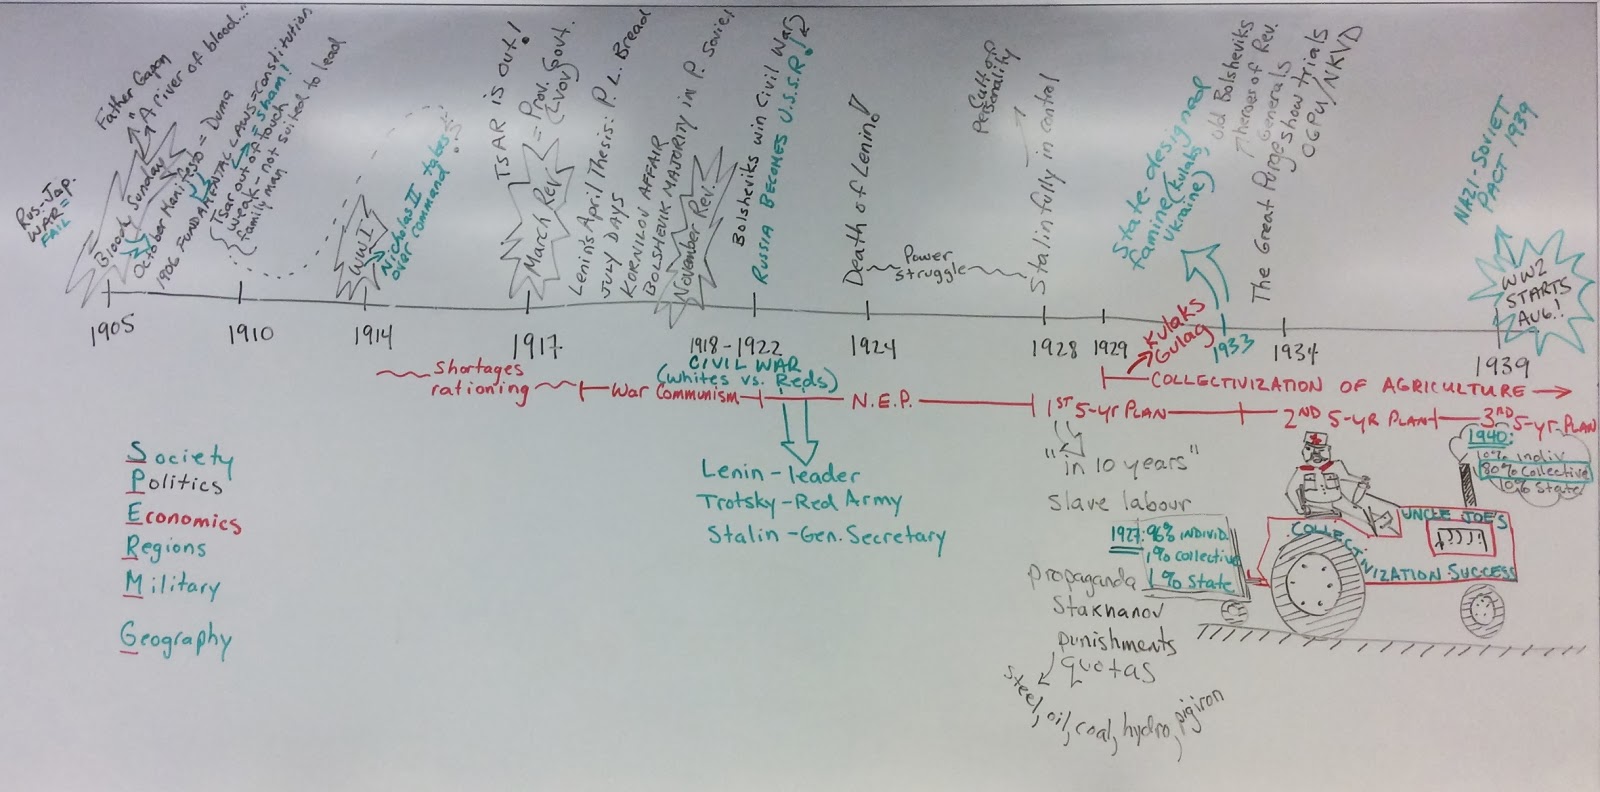 Rus-Jap.
WAR = 
FAIL
Father Gapon
"A river of blood..."
Bloody Sunday
October Manifesto = Duma
1906-FUNDAMENTAL LAWS=constitution
= sham!
Tsar out of touch
weak - not suited to lead
family man
WWI
Nicholas II takes
over command
TSAR is out!
March Rev. = Prov. Gov't.
(Lvov)
Lenin's April Thesis: P. L. Bread
JULY DAYS
KORNILOV AFFAIR
BOLSHEVIK MAJORITY in P. Soviet
November Rev.
Bolsheviks win Civil War
RUSSIA BECOMES U.S.S.R!
Death of Lenin!
Power
struggle
Cult of
Personality
Stalin fully in control
State-designed
famine (kulaks,
Ukraine)
The Great Purge
old Bolsheviks
heroes of Rev.
Generals
show trials
OGPU/NKVD
NAZI-SOVIET
PACT 1939
WW2
STARTS
AUG.!
1905
1910
1914
1917
1918-1922
1924
1928
1929
1933
1934
1939
Kulaks
Gulag
CIVIL WAR
(whites vs. Reds)
Shortages
rationing
War Communism
N.E.P.
COLLECTIVIZATION OF AGRICULTURE
1ST 5-yr PLAN
2ND 5-YR PLAN
3RD 5-yr-PLAN
Society
Politics
Economics
Regions
Military
Geography
Lenin-leader
Trotsky-Red Army
Stalin-Gen. Secretary
"in 10 years"
slave labour
propaganda
Stakhanov
punishments
quotas
steel, oil, coal, hydro, pig iron
1927: 96% INDIVID
1% collective
1% State
1940:
10% indiv
80% collective
10% State
UNCLE JOE'S
COLLECTIVIZATION SUCCESS